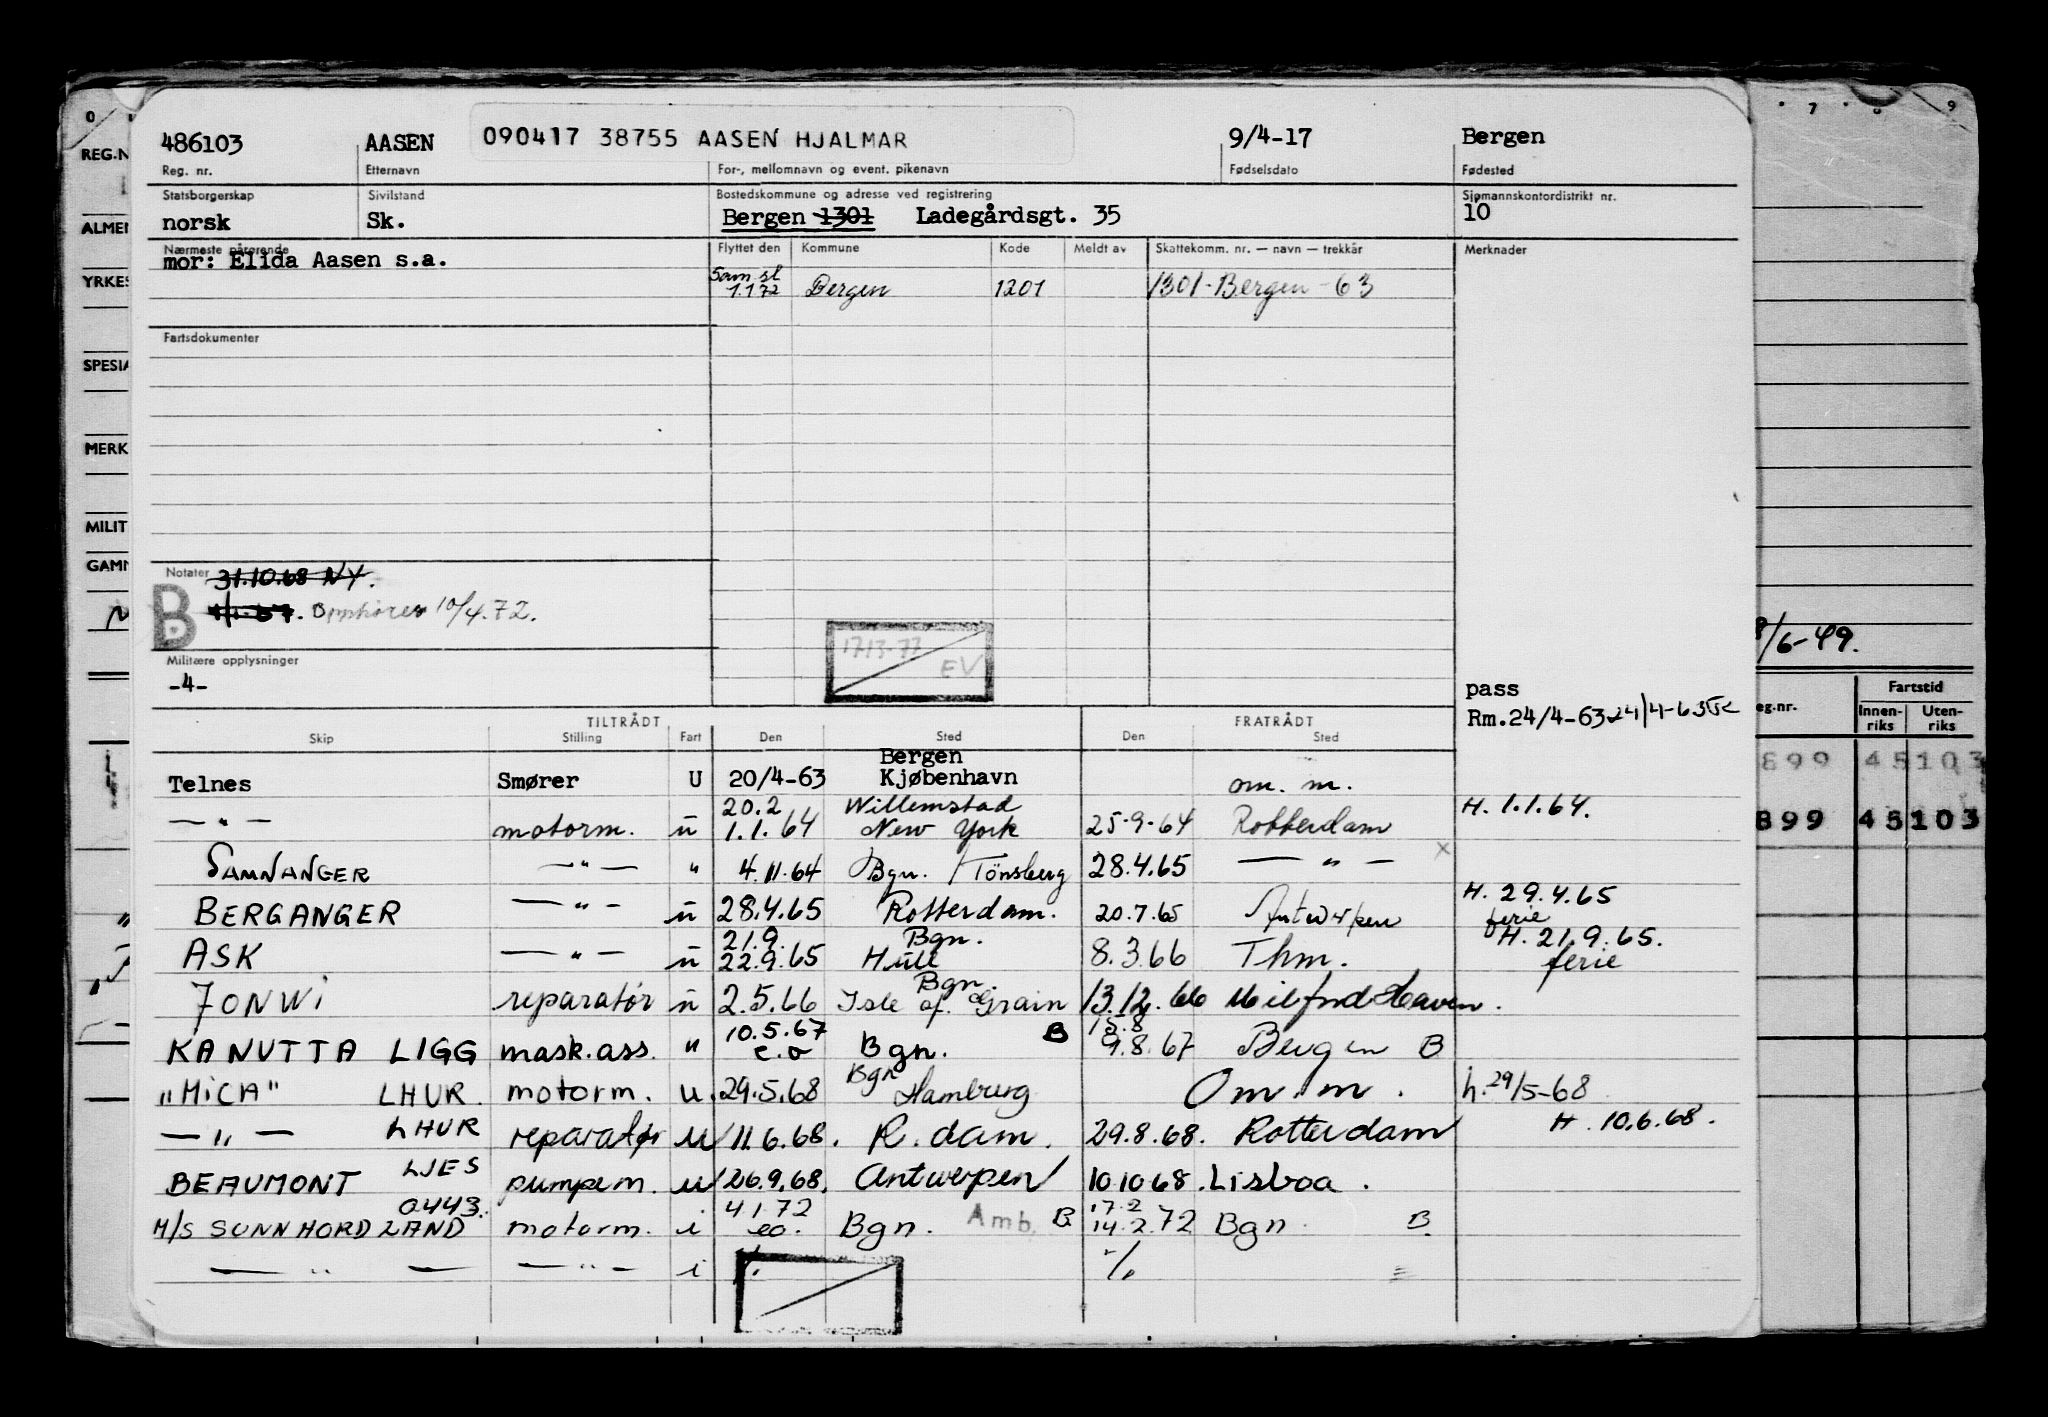 486103 AASEN 090417 38755 AASEN HJALMAR 9/4-17 Bergen
Reg. nr. Etternavn For-, mellomnavn og event. pikenavn Fødselsdato Fødested
Statsborgerskap Sivilstand Bostedskommune og adresse ved registrering Sjømannskontordistrikt nr.
norsk Sk. Bergen 1301 Ladegårdsgt. 35 10
Nærmeste pårørende Flyttet den Kommune Kode Meldt av Skattekomm. nr. — navn — trekkår Merknader
mor: Elida Aasen s.a.
1.1 72 Bergen 1201 1301-Bergen-63
Fartsdokumenter
Notater 31.10.68 NY.
B Opphører 10/4.72.
EV
Militære opplysninger
-4-
pass
Rm.24/4-63 24/4-63
TILTRÅDT FRATRÅDT
Skip Stilling Fart Den Sted Den Sted
Bergen
Telnes Smører U 20/4-63 Kjøbenhavn om. m.
20.2 Willemstad H. 1.1.64.
— " — motorm. u 1.1.64 New York 25-9-64 Rotterdam
SAMNANGER — " — " 4.11.64 Bgn. /Tönsberg 28.4.65 — " — x
BERGANGER — " — u 28.4.65 Rotterdam. 20.7.65 Antwerpen H. 29.4.65
ferie
21.9. Bgn. H. 21.9.65.
ASK — " — u 22.9.65 Hull 8.3.66 Thm. ferie
Bgn.
JONWI reparatør u 2.5.66 Isle of Grain 13.12.66 Milford Haven.
10.5.67 B 15.8
KANUTTA LIGG mask.ass. " e.o Bgn. 9.8.67 Bergen B
Bgn
"MICA" LHUR. motorm. u. 29.5.68 Hamburg Om. m. h. 29/5-68
— " — LHUR reparatør u 11.6.68. R.dam. 29.8.68. Rotterdam H. 10.6.68.
BEAUMONT LJES pumpem. u 26.9.68. Antwerpen 10.10.68. Lisboa.
0443. 4.1.72 17.2
M/S SUNNHORDLAND motorm. i eo. Bgn. Amb. B. 14.2.72 Bgn. B.
— " — — " — i %. %
0 7 8 9
REG.N
ALMEN
YRKES
SPESIA
MERK
MILIT
GAMM
/6-49.
eg.nr. Fartstid
Innen-riks Uten-riks
899 45103
899 45103